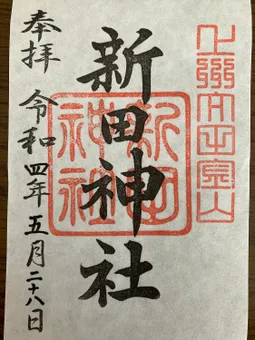 新田神社
新田神社
奉拝
令和四年五月二十八日